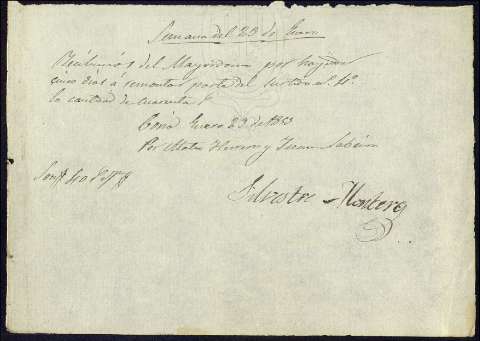 Semana del 23 de Enero
Recibimos del Mayordomo por
cinco dias á remontar parte del
la cantidad de cuarenta r
Coria Enero 23 de 1853
Por Mateo Herrero y Juan Sabán
Son 40
Silvestre Montero